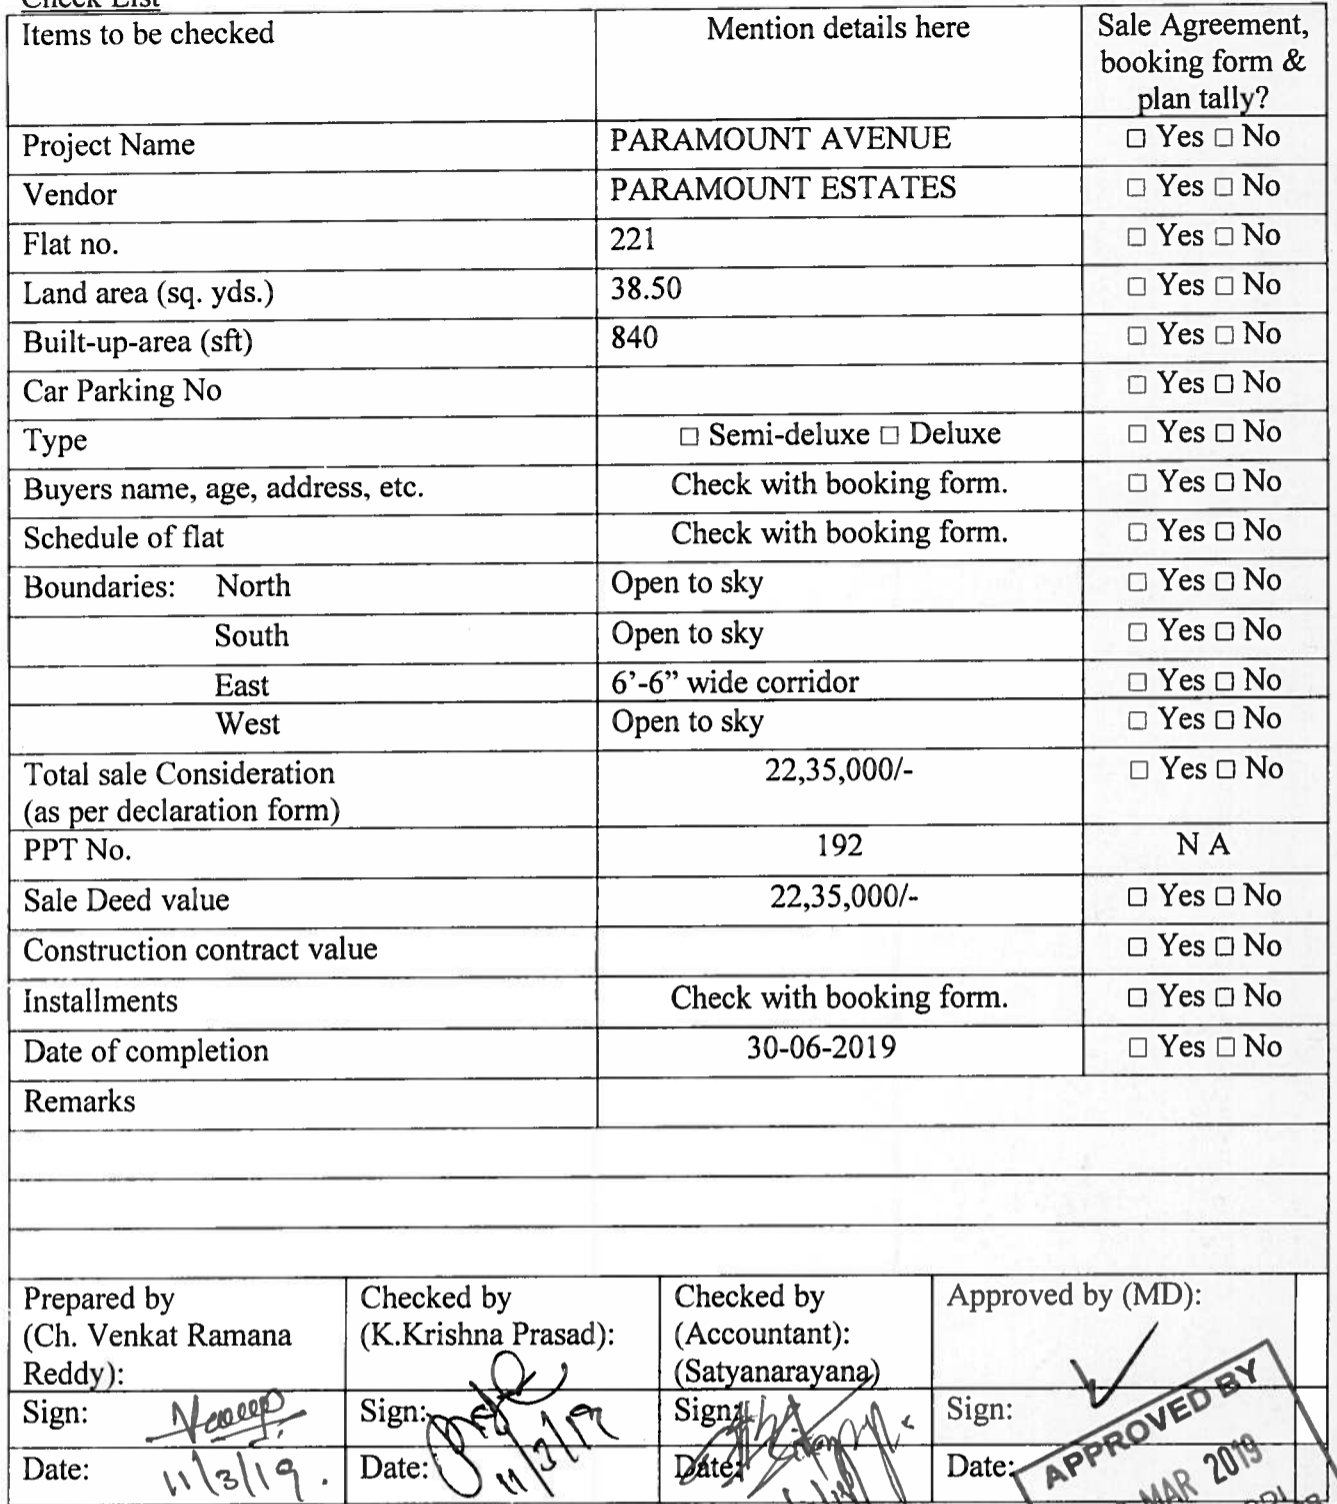 Check List
Items to be checked Mention details here Sale Agreement,
booking form &
plan tally?
Project Name PARAMOUNT AVENUE □ Yes □ No
Vendor PARAMOUNT ESTATES □ Yes □ No
Flat no. 221 □ Yes □ No
Land area (sq. yds.) 38.50 □ Yes □ No
Built-up-area (sft) 840 □ Yes □ No
Car Parking No □ Yes □ No
Type □ Semi-deluxe □ Deluxe □ Yes □ No
Buyers name, age, address, etc. Check with booking form. □ Yes □ No
Schedule of flat Check with booking form. □ Yes □ No
Boundaries: North Open to sky □ Yes □ No
South Open to sky □ Yes □ No
East 6’-6” wide corridor □ Yes □ No
West Open to sky □ Yes □ No
Total sale Consideration 22,35,000/- □ Yes □ No
(as per declaration form)
PPT No. 192 N A
Sale Deed value 22,35,000/- □ Yes □ No
Construction contract value □ Yes □ No
Installments Check with booking form. □ Yes □ No
Date of completion 30-06-2019 □ Yes □ No
Remarks
Prepared by
(Ch. Venkat Ramana
Reddy):
Checked by
(K.Krishna Prasad):
Checked by
(Accountant):
(Satyanarayana)
Approved by (MD):
Sign: Sign: Sign: Sign:
Date: 11/3/19. Date: 11/3/19 Date: Date:
APPROVED BY
MAR 2019